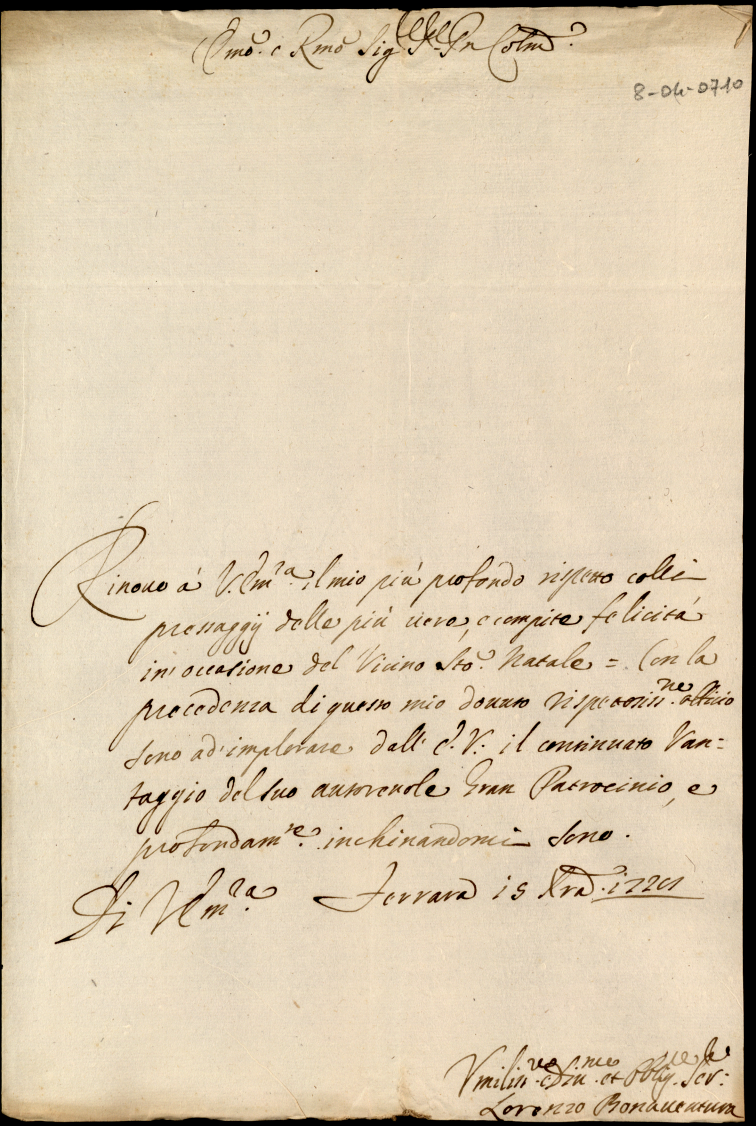 Emo. e Rmo Sig.re Pne Colmo.
8-04-0710
Rinovo à V. Em.za il mio più profondo rispetto colli
pressaggij delle più vere, e compite felicità
in occasione del Vicino Sto. Natale = Con la
precedenza di questo mio dovuto rispetosiss.mo offitio
sono ad implorare dall' E. V. il continuato Van=
taggio del suo autorevole Gran Patrocinio, e
profondam.te inchinandomi sono.
Di V. Em.za Ferrara 15 Xbre
Umiliss.mo Div.mo et Obblig.mo Ser.
Lorenzo Bonaventura